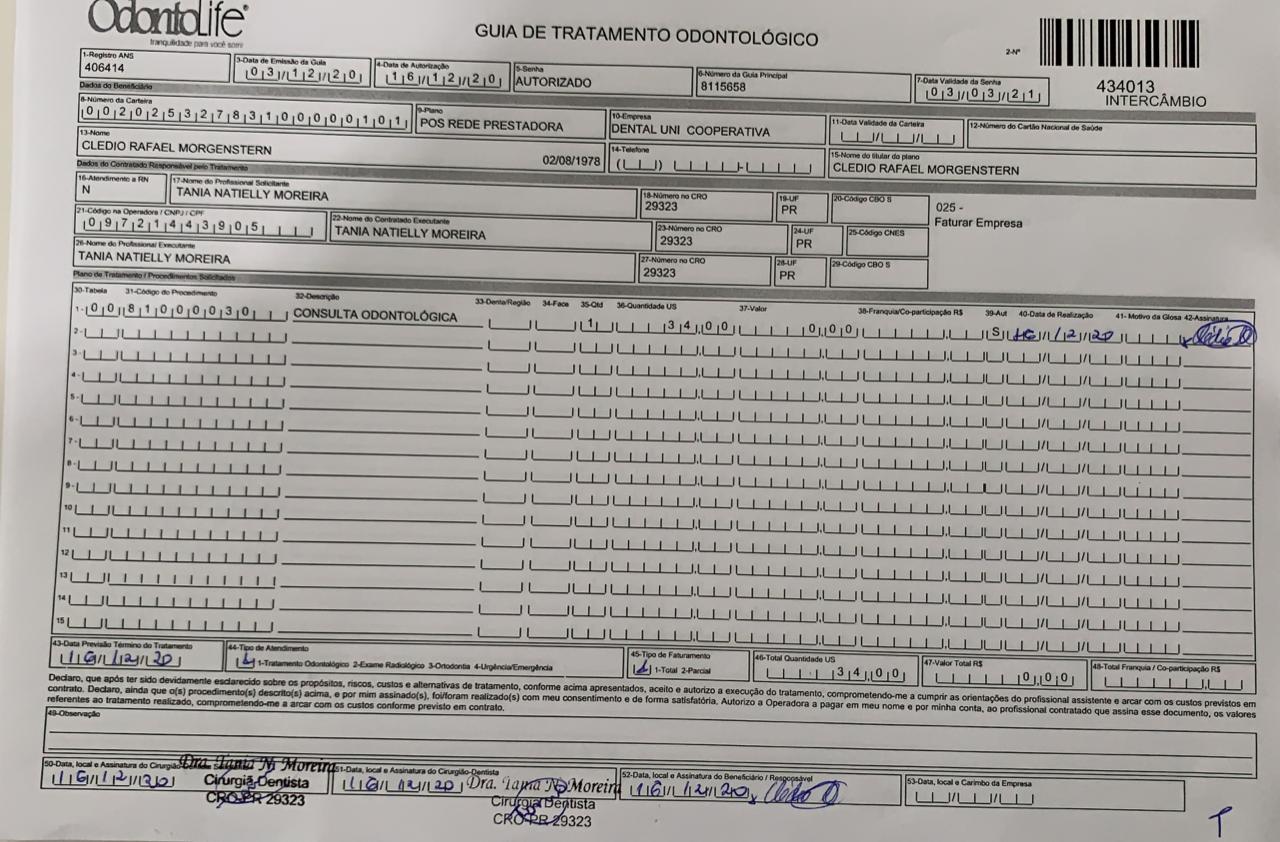 OdontoLife®
tranquilidade para você sorrir
GUIA DE TRATAMENTO ODONTOLÓGICO
2-Nº
434013
INTERCÂMBIO
1-Registro ANS
406414
3-Data de Emissão da Guia
03/12/20
4-Data de Autorização
16/12/20
5-Senha
AUTORIZADO
6-Número da Guia Principal
8115658
7-Data Validade da Senha
03/03/21
Dados do Beneficiário
8-Número da Carteira
00202532783100000101
9-Plano
POS REDE PRESTADORA
10-Empresa
DENTAL UNI COOPERATIVA
11-Data Validade da Carteira
12-Número do Cartão Nacional de Saúde
13-Nome
CLEDIO RAFAEL MORGENSTERN 02/08/1978
14-Telefone
15-Nome do titular do plano
CLEDIO RAFAEL MORGENSTERN
Dados do Contratado Responsável pelo Tratamento
16-Atendimento a RN
N
17-Nome do Profissional Solicitante
TANIA NATIELLY MOREIRA
18-Número no CRO
29323
19-UF
PR
20-Código CBO S
025 -
Faturar Empresa
21-Código na Operadora / CNPJ / CPF
09721443905
22-Nome do Contratado Executante
TANIA NATIELLY MOREIRA
23-Número no CRO
29323
24-UF
PR
25-Código CNES
26-Nome do Profissional Executante
TANIA NATIELLY MOREIRA
27-Número no CRO
29323
28-UF
PR
29-Código CBO S
Plano de Tratamento / Procedimentos Solicitados
30-Tabela 31-Código do Procedimento 32-Descrição 33-Dente/Região 34-Face 35-Qtd 36-Quantidade US 37-Valor 38-Franquia/Co-participação R$ 39-Aut 40-Data de Realização 41- Motivo da Glosa 42-Assinatura
1- 00 81000030 CONSULTA ODONTOLÓGICA 1 34,00 0,00 S 16/12/20
2-
3-
4-
5-
6-
7-
8-
9-
10
11
12
13
14
15
43-Data Previsão Término do Tratamento
16/12/20
44-Tipo de Atendimento
1 1-Tratamento Odontológico 2-Exame Radiológico 3-Ortodontia 4-Urgência/Emergência
45-Tipo de Faturamento
1 1-Total 2-Parcial
46-Total Quantidade US
34,00
47-Valor Total R$
0,00
48-Total Franquia / Co-participação R$
Declaro, que após ter sido devidamente esclarecido sobre os propósitos, riscos, custos e alternativas de tratamento, conforme acima apresentados, aceito e autorizo a execução do tratamento, comprometendo-me a cumprir as orientações do profissional assistente e arcar com os custos previstos em
contrato. Declaro, ainda que o(s) procedimento(s) descrito(s) acima, e por mim assinado(s), foi/foram realizado(s) com meu consentimento e de forma satisfatória. Autorizo a Operadora a pagar em meu nome e por minha conta, ao profissional contratado que assina esse documento, os valores
referentes ao tratamento realizado, comprometendo-me a arcar com os custos conforme previsto em contrato.
49-Observação
50-Data, local e Assinatura do Cirurgião
16/12/20
Dra. Tania N. Moreira
Cirurgiã-Dentista
CRO-PR 29323
51-Data, local e Assinatura do Cirurgião-Dentista
16/12/20
Dra. Tania N. Moreira
Cirurgiã-Dentista
CRO-PR 29323
52-Data, local e Assinatura do Beneficiário / Responsável
16/12/20
53-Data, local e Carimbo da Empresa